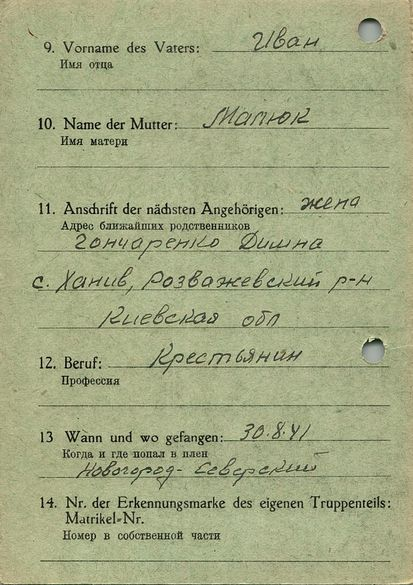 9. Vorname des Vaters: Иван
Имя отца
10. Name der Mutter: Матюк
Имя матери
11. Anschrift der nächsten Angehörigen: жена
Адрес ближайших родственников
Гончаренко
с. Ханив, Розважевский р-н
Киевская обл
12. Beruf: Крестьянин
Профессия
13 Wann und wo gefangen: 30.8.41
Когда и где попал в плен
Новогород-Северский
14. Nr. der Erkennungsmarke des eigenen Truppenteils:
Matrikel-Nr.
Номер в собственной части